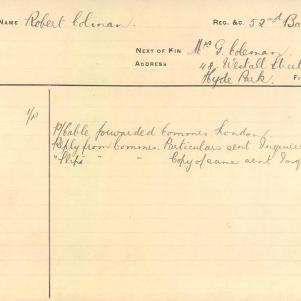 NAME Robert Colman. REG. &C. 52nd Ba
NEXT OF KIN Mrs G. Coleman.
ADDRESS 48, Westall Street
Hyde Park. F
1/P
P/Cable forwarded Commes London.
Reply from Commes. Particulars sent Enquirer
" " " Copy of same sent Enq